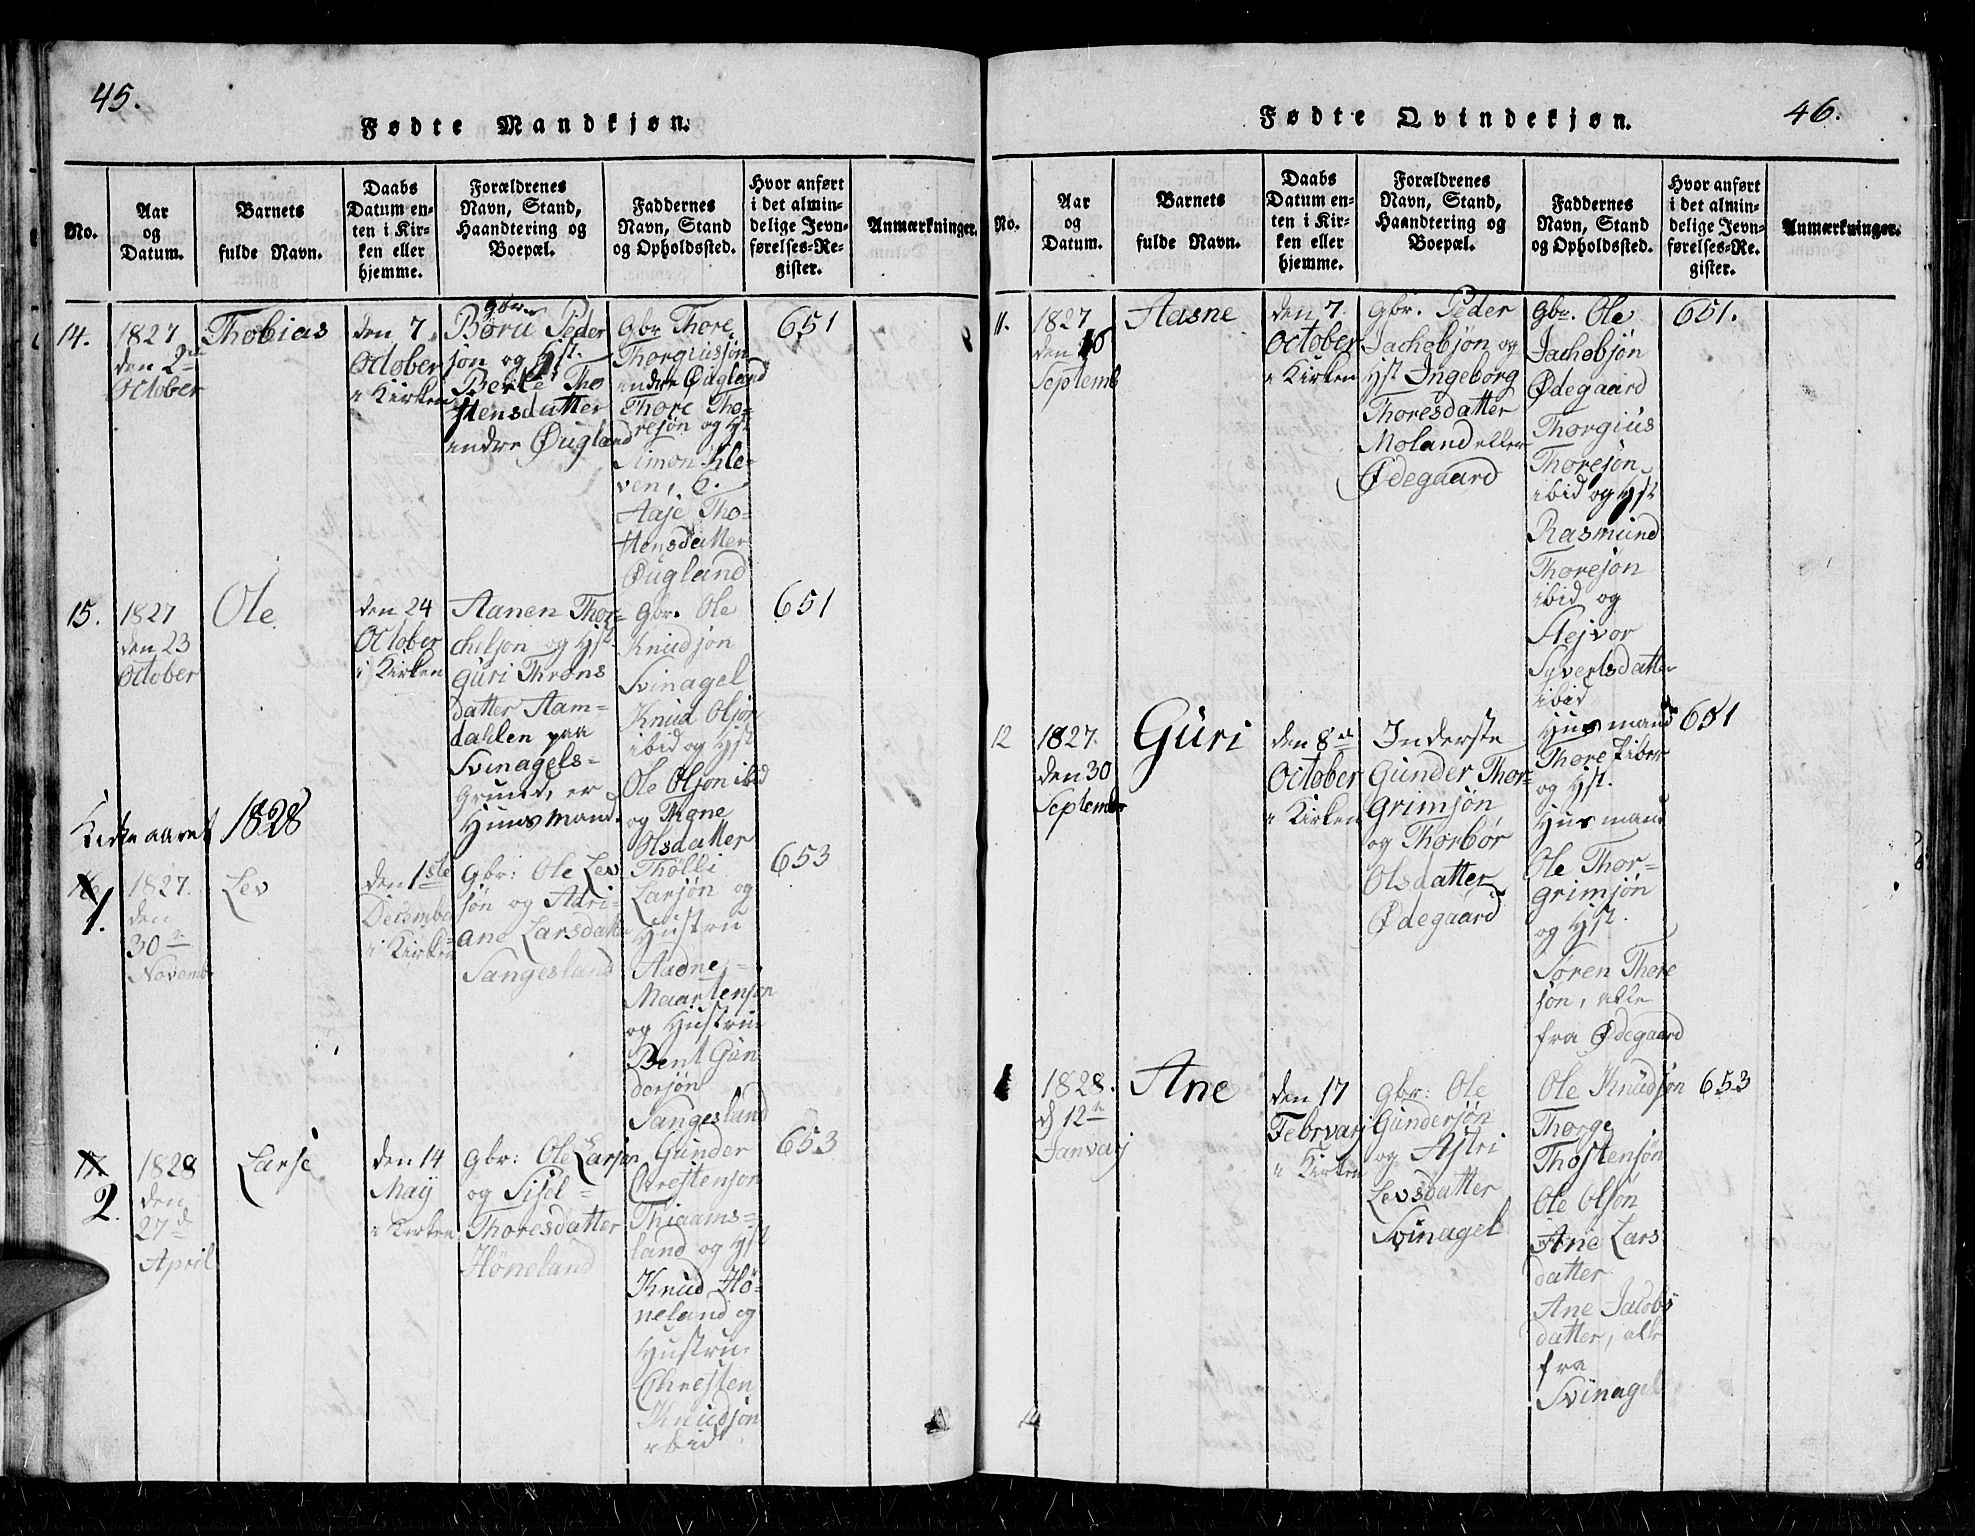 45.
Fødte Mandkjøn.
No.
Aar
og
Datum.
Barnets
fulde Navn.
Daabs
Datum en-
ten i Kir-
ken eller
hjemme.
Forældrenes
Navn, Stand,
Haandtering og
Boepæl.
Faddernes
Navn, Stand
og Opholdssted.
Hvor anført
i det almin-
delige Jevn-
førelses-Re-
gister.
Anmærkninger.
14.
1827
den 2den
October
Thobias
den 7
October
i Kirken
gbr.
Børu Peder
søn og Hst.
Berte Tho
stensdatter
indre Øugland
gbr Thore
Thorgiussøn
indre Øugland
Thore Tho-
resøn og Hst
Simon Kle-
ven,
Aase Tho-
stensdatter
Øugland
651
15.
1827
den 23
October
Ole
den 24
October
i Kirken
Aanen Thor-
chelsøn og Hst.
Guri Throns
datter Aam-
dahlen paa
Svinagels-
Grund, er
Huusmand.
gbr. Ole
Knudsøn
Svinagel
Knud Olsøn
ibid og Hst
Ole Olsøn ibid
og Thone
Olsdatter
651
Kirkeaaret 1828
1.
1827.
den
30te
Novemb
Lev
den 1ste
December
i Kirken
gbr: Ole Lev
søn og Adri-
ane Larsdatter
Sangesland
Thölli
Larsøn og
Hustru
Aadne
Maartensøn
og Hustru
Bent Gun
dersøn
Sangesland
653
17.
2.
1828
den
27de
April
Larse
den 14
May
i Kirken
gbr: Ole Larsøn
og Sisel
Thoresdatter
Höneland
Gunder
Chrestensøn
Thiaams-
land og Hst
Knud Hö-
neland og
Hustru
Chresten
Knudsøn
ibid
653
46.
Fødte Qvindekjøn.
No.
Aar
og
Datum.
Barnets
fulde Navn.
Daabs
Datum en-
ten i Kir-
ken eller
hjemme.
Forældrenes
Navn, Stand,
Haandtering og
Boepæl.
Faddernes
Navn, Stand
og Opholdssted.
Hvor anført
i det almin-
delige Jevn-
førelses-Re-
gister.
Anmærkninger.
11.
1827
den 16
Septemb
Aasne
den 7.
October
i Kirken
gbr. Peder
Jachobsøn og
Hst Ingeborg
Thoresdatter
Moland eller
Ødegaard
gbr. Ole
Jachobsøn
Ødegaard
Thorgius
Thoresøn
ibid og Hst
Rasmund
Thoresøn
ibid og
Stejvor
Syvertsdatter
ibid
651.
12
1827.
den 30
September
Guri
den 8de
October
i Kirken
Inderste
Gunder Thor-
grimsøn
og Thorbør
Olsdatter
Ødegaard
Husmand
Thore Piber
og Hst.
Husmand
Ole Thor-
grimsøn
og Hst.
Søren Thore
søn, alle
fra Ødegaard
651
1
1828.
d 12te
Janvarj
Ane
den 17
Febrvarj
i Kirken
gbr: Ole
Gundersøn
og Astri
Levsdatter
Svinagel
Ole Knudsøn
Thorge
Thostensøn
Ole Olsøn
Ane Lars
datter
Ane Jacobs
datter, alle
fra
Svinagel
653